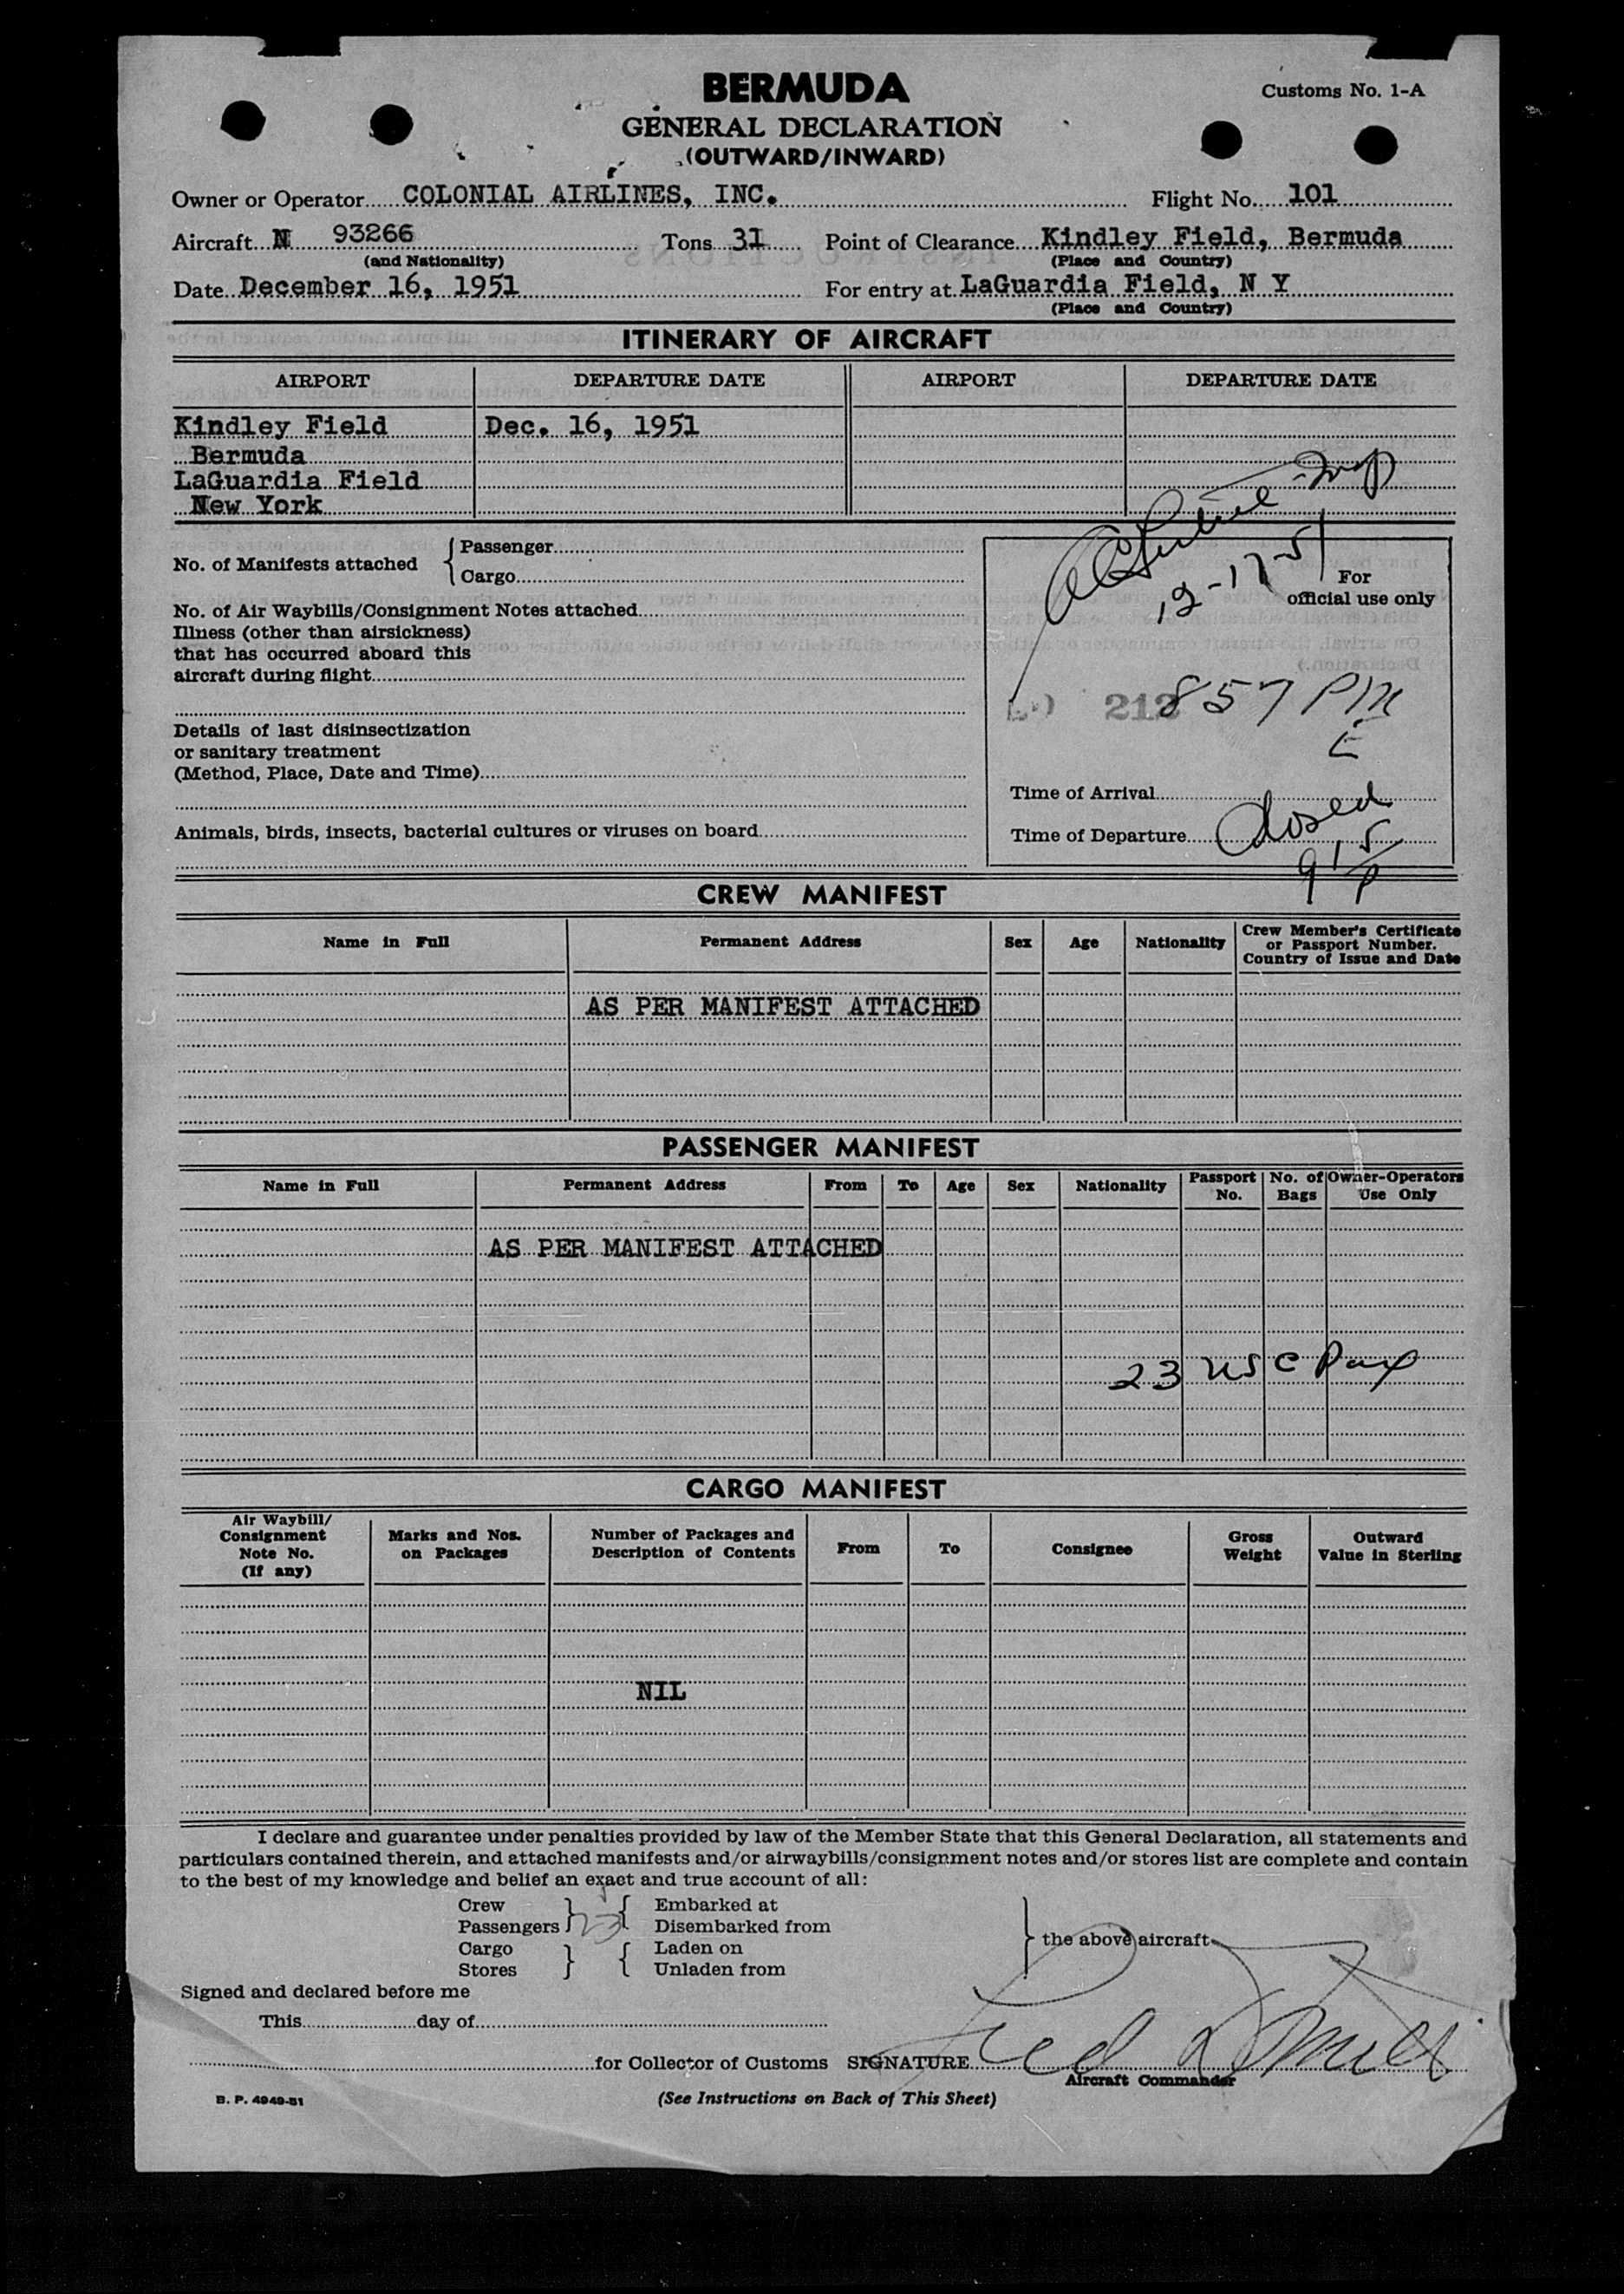 BERMUDA
Customs No. 1-A
GENERAL DECLARATION
(OUTWARD/INWARD)
Owner or Operator COLONIAL AIRLINES, INC. Flight No. 101
Aircraft N 93266 Tons 31 Point of Clearance Kindley Field, Bermuda
(and Nationality) (Place and Country)
Date December 16, 1951 For entry at LaGuardia Field, N Y
(Place and Country)
ITINERARY OF AIRCRAFT
AIRPORT DEPARTURE DATE AIRPORT DEPARTURE DATE
Kindley Field Dec. 16, 1951
Bermuda
LaGuardia Field
New York
No. of Manifests attached { Passenger
Cargo
12-17-51
For
official use only
No. of Air Waybills/Consignment Notes attached
Illness (other than airsickness)
that has occurred aboard this
aircraft during flight
212
857 PM
E
Details of last disinsectization
or sanitary treatment
(Method, Place, Date and Time)
Time of Arrival
Animals, birds, insects, bacterial cultures or viruses on board
Time of Departure Closed
915 P
CREW MANIFEST
Name in Full Permanent Address Sex Age Nationality Crew Member's Certificate
or Passport Number.
Country of Issue and Date
AS PER MANIFEST ATTACHED
PASSENGER MANIFEST
Name in Full Permanent Address From To Age Sex Nationality Passport No. No. of Bags Owner-Operators Use Only
AS PER MANIFEST ATTACHED
23 USC Pax
CARGO MANIFEST
Air Waybill/
Consignment
Note No.
(If any)
Marks and Nos.
on Packages
Number of Packages and
Description of Contents
From
To
Consignee
Gross
Weight
Outward
Value in Sterling
NIL
I declare and guarantee under penalties provided by law of the Member State that this General Declaration, all statements and
particulars contained therein, and attached manifests and/or airwaybills/consignment notes and/or stores list are complete and contain
to the best of my knowledge and belief an exact and true account of all:
Crew Embarked at
Passengers } 23 { Disembarked from
the above aircraft
Cargo Laden on
Stores } { Unladen from
Signed and declared before me
This day of
for Collector of Customs SIGNATURE
Aircraft Commander
B. P. 4949-51
(See Instructions on Back of This Sheet)